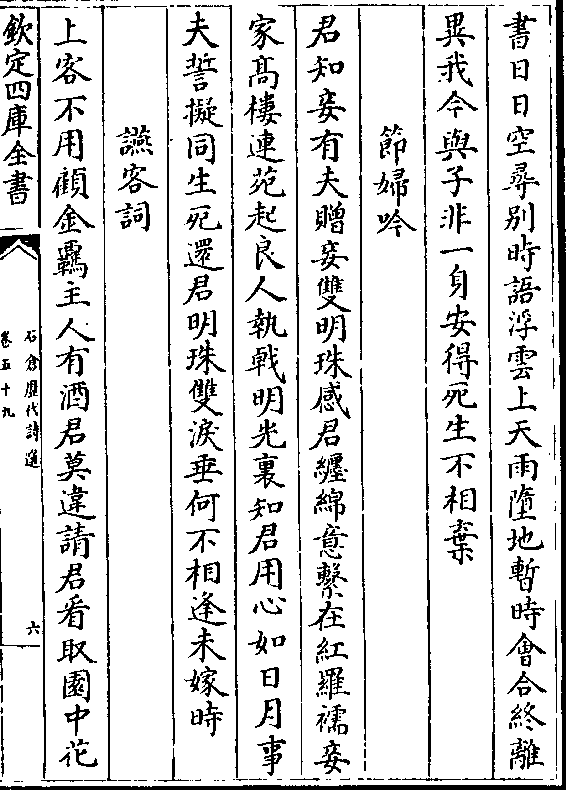 書日日空尋别時語浮雲上天雨墮地暫時會合終離
異我今與子非一身安得死生不相棄
節婦吟
君知妾有夫贈妾雙明珠感君纒綿意繫在紅羅襦妾
家髙樓連苑起良人執㦸明光裏知君用心如日月事
夫誓擬同生死還君明珠雙淚垂何不相逢未嫁時
讌客詞
上客不用顧金羈主人有酒君莫違請君看取園中花
欽定四庫全書
石倉歷代詩選
卷五十九
六